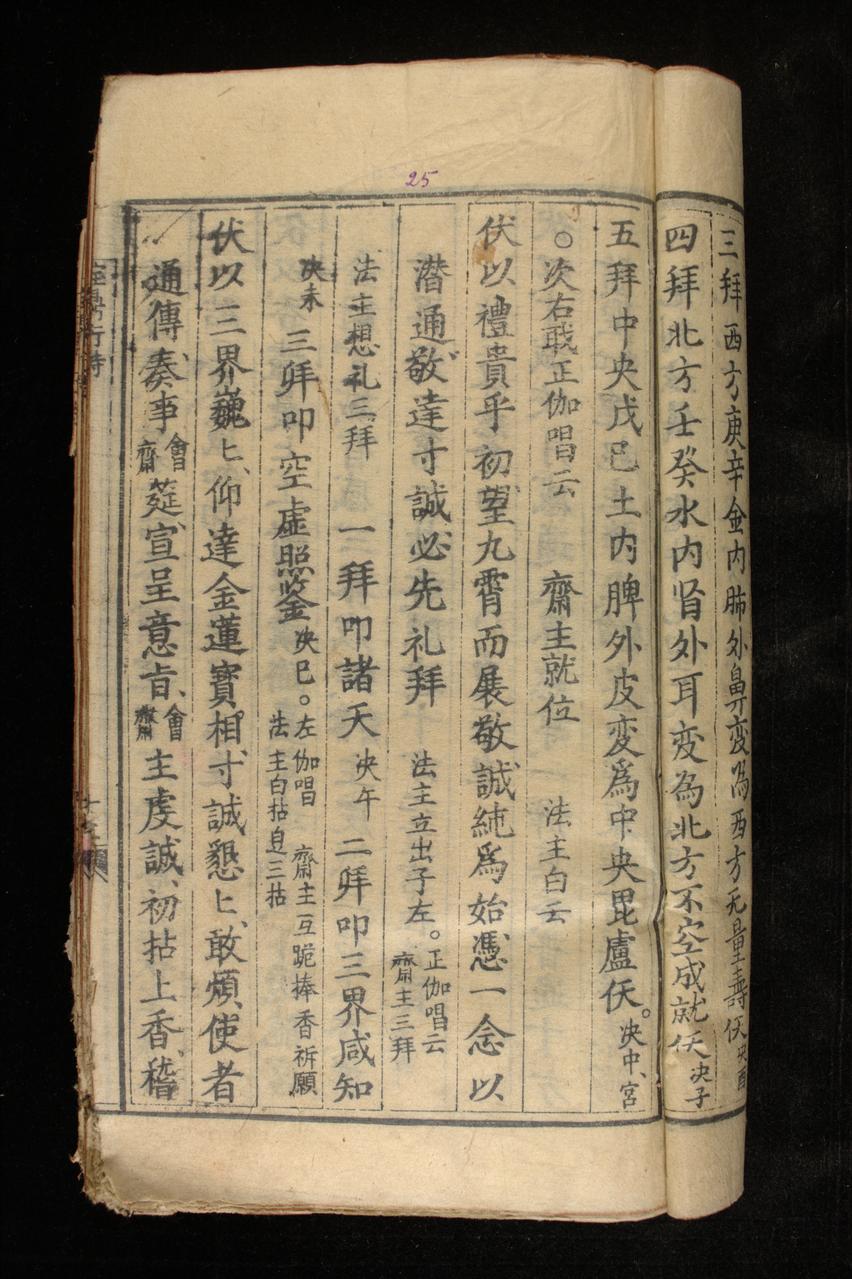 25
三拜西方庚辛金内肺外鼻変為西方无量壽仸决酉
四拜北方壬癸水内肾外耳变為北方不空成就仸决子
五拜中央戊己土内脾外皮变爲中央毘盧仸。决中宮
○次右戢正伽唱云 齋主就位 法主白云
伏以禮貴乎初望九霄而展敬誠純爲始憑一念以
潛通敬達寸誠必先礼拜 法主立出子左。正伽唱云齋主三拜
法主想礼三拜 一拜叩諸天决午 二拜叩三界咸知
决未 三拜叩空虚照鉴决巳。左伽唱 齋主互跪捧香祈願法主白拈皂三拈
伏以三界巍〻、仰達金蓮寶相、寸誠懇〻、敢煩使者
通傳奏事會齋筵、宣呈意旨、會齋主虔誠、初拈上香、稽